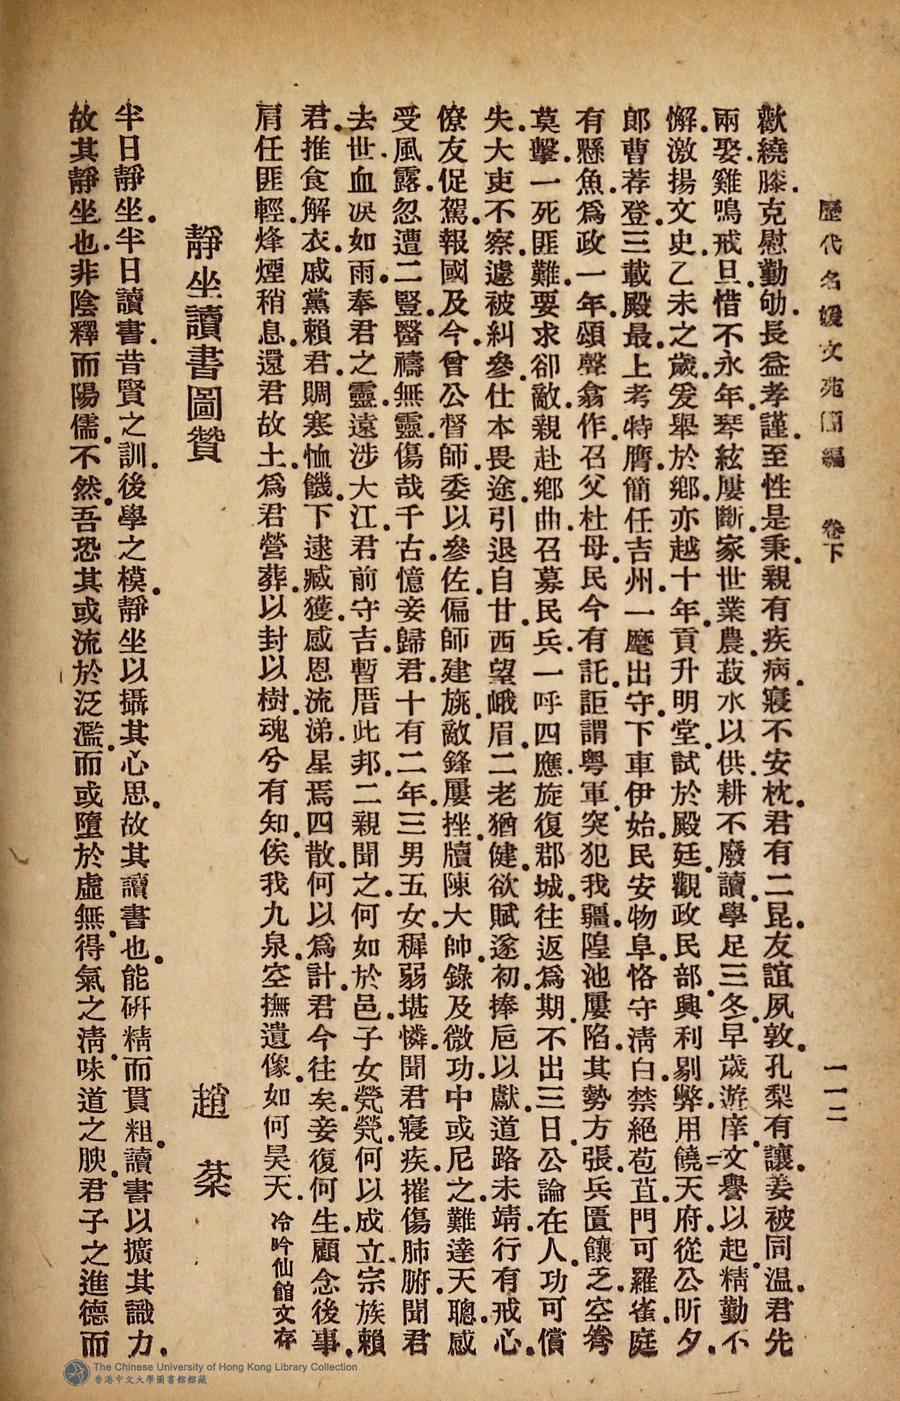 歷代名媛文苑簡編　卷下　一一二
歡繞膝．克慰勤劬．長益孝謹．至性是秉．親有疾病．寢不安枕．君有二昆．友誼夙敦．孔梨有讓．姜被同溫．君先
兩娶．雞鳴戒旦．惜不永年．琴絃屢斷．家世業農．菽水以供．耕不廢讀．學足三冬．早歲游庠．文譽以起．精勤不
懈．激揚文史．乙未之歲．爰舉於鄉．亦越十年．貢升明堂．試於殿廷．觀政民部．興利剔弊．用饒天府．從公昕夕．
郎曹荐登．三載殿最．上考特膺．簡任吉州．一麾出守．下車伊始．民安物阜．恪守清白．禁絕苞苴．門可羅雀．庭
有懸魚．爲政一年．頌聲翕作．召父杜母．民今有託．詎謂粵軍．突犯我疆．隍池屢陷．其勢方張．兵匱餉乏．空拳
莫擊．一死匪難．要求卻敵．親赴鄉曲．召募民兵．一呼四應．旋復郡城．往返爲期．不出三日．公論在人．功可償
失．大吏不察．遽被糾參．仕本畏途．引退自甘．西望峨眉．二老猶健．欲賦遂初．捧巵以獻．道路未靖．行有戒心．
僚友促駕．報國及今．曾公督師．委以參佐．偏師建旐．敵鋒屢挫．牘陳大帥．錄及微功．中或尼之．難達天聰．感
受風露．忽遭二豎．醫禱無靈．傷哉千古．憶妾歸君．十有二年．三男五女．穉弱堪憐．聞君寢疾．摧傷肺腑．聞君
去世．血淚如雨．奉君之靈．遠涉大江．君前守吉．暫厝此邦．二親聞之．何如於邑．子女煢煢．何以成立．宗族賴
君．推食解衣．戚黨賴君．賙寒恤饑．下逮臧獲．感恩流涕．星焉四散．何以爲計．君今往矣．妾復何生．顧念後事．
肩任匪輕．烽煙稍息．還君故土．爲君營葬．以封以樹．魂兮有知．俟我九泉．空撫遺像．如何昊天．冷吟仙館文存
靜坐讀書圖贊　趙棻
半日靜坐．半日讀書．昔賢之訓．後學之模．靜坐以攝其心思．故其讀書也．能研精而貫粗．讀書以擴其識力．
故其靜坐也．非陰釋而陽儒．不然．吾恐其或流於泛濫．而或墮於虛無．得氣之清．味道之腴．君子之進德而
The Chinese University of Hong Kong Library Collection
香港中文大學圖書館館藏